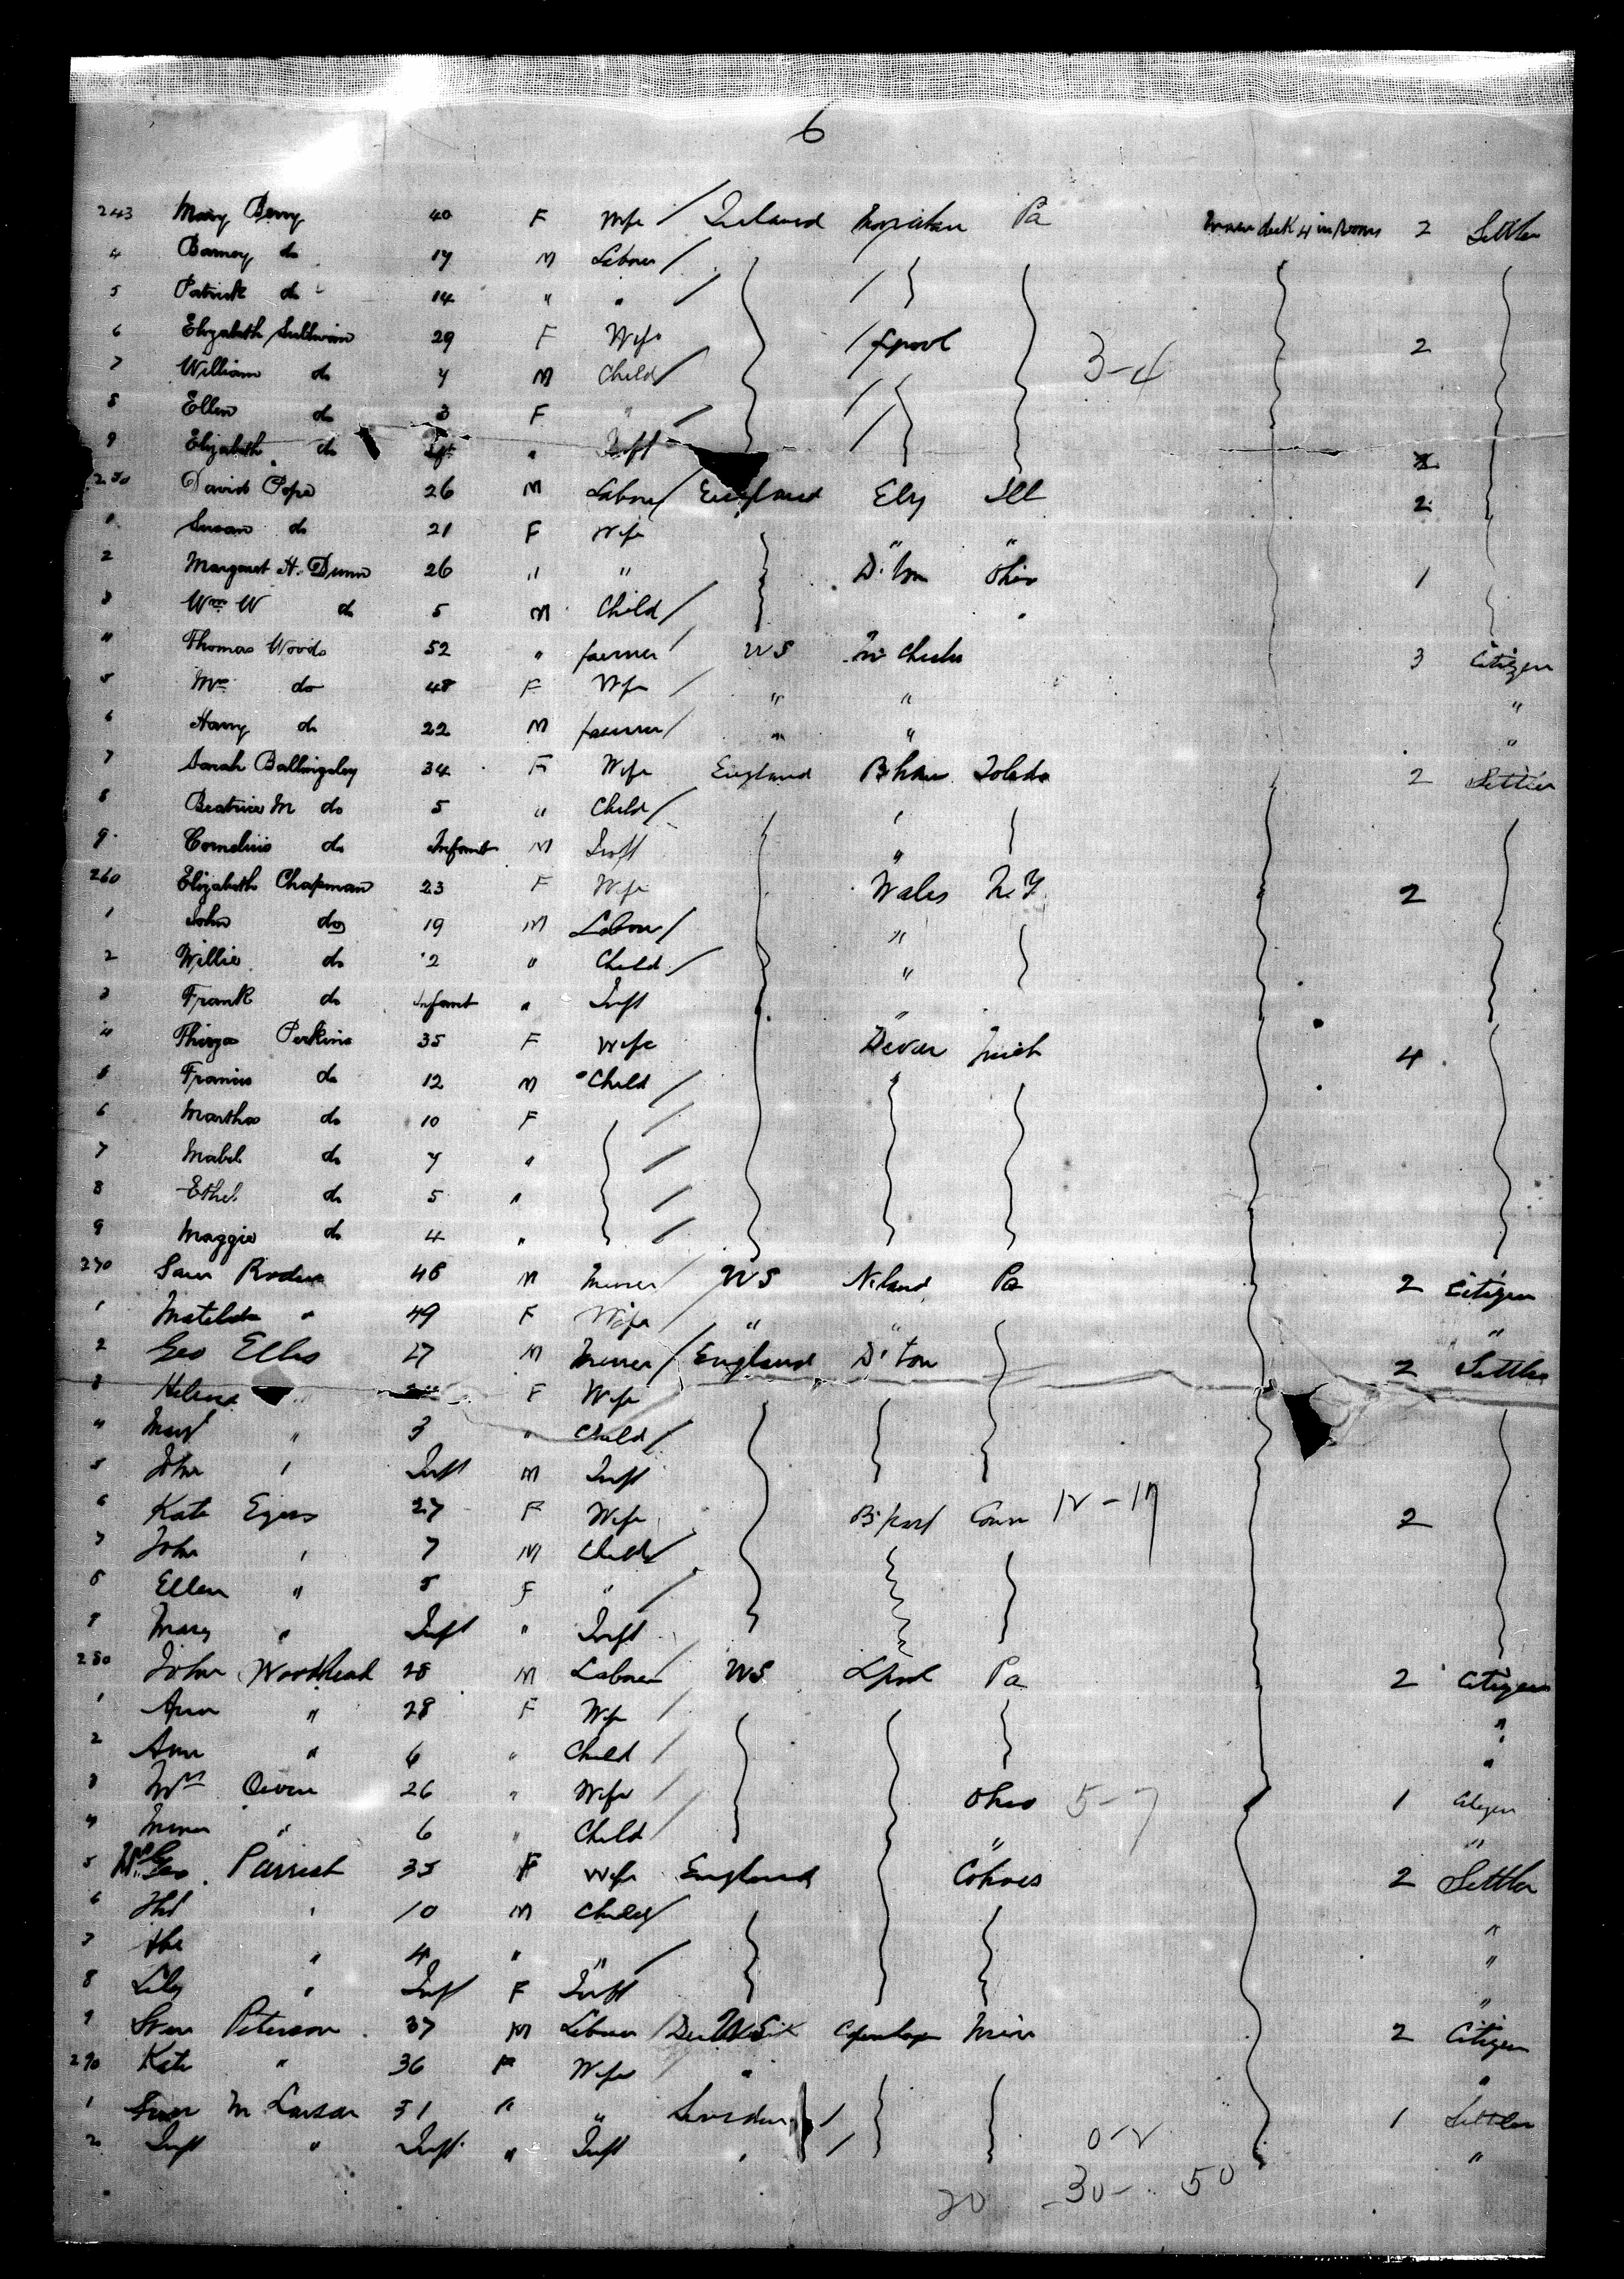 6
243 Mary Berry 40 F Wife / Ireland Pa 4 in Rooms 2 Settler
4 Barney do 17 M Labour /
5 Patrick do 14 " " /
6 Elizabeth Sullivan 29 F Wife / Lpool 2
3-4
7 William do 7 M Child /
8 Ellen do 3 F " /
9 Elizabeth do Inft " Inft
250 David Pope 26 M Labour / England Ely Ill 2
1 Susan do 21 F Wife " "
2 Margaret H. Dunn 26 " " D'ton Ohio 1
3 Wm W do 5 M Child / "
4 Thomas Woods 52 " farmer / US 3 Citizen
5 Mrs do 48 F Wife / " " "
6 Harry do 22 M farmer / " " "
7 Sarah Ballingsley 34 F Wife England B'ham Toledo 2 Settler
8 Beatrice M do 5 " Child /
9 Cornelius do Infant M Inft "
260 Elizabeth Chapman 23 F Wife Wales N.Y. 2
1 John do 19 M Labour / "
2 Willie do 2 " Child / "
3 Frank do Infant " Inft "
4 Thirza Perkins 35 F Wife Devon Mich 4
5 Francis do 12 M Child /
6 Martha do 10 F /
7 Mabel do 7 " /
8 Ethel do 5 " /
9 Maggie do 4 " /
270 Sam 48 M Miner / US Pa 2 Citizen
1 Matilda " 49 F Wife / " " "
2 Geo Ellis 27 M Miner / England D'ton 2 Settler
3 " F Wife
4 Mary " 3 " Child /
5 John " Inft M Inft
6 Kate Egers 27 F Wife Conn 2
7 John " 7 M Child /
8 Ellen " 5 F " /
9 Mary " Inft " Inft
280 John Woodhead 28 M Labourer / US Lpool Pa 2 Citizen
1 Ann " 28 F Wife / "
2 Ann " 6 " Child / "
3 Mrs Owen 26 " Wife / Ohio 5-7 1 Citizen
4 " 6 " Child / " "
5 Mrs Geo Parrish 35 F Wife England Cohoes 2 Settler
6 " 10 M Child / "
7 " 4 " " / "
8 Lily " Inft F Inft "
9 Peterson 37 M Labour / US Copenhagen Minn 2 Citizen
290 Kate " 36 F Wife " "
1 M Larson 31 " " Sweden / 1 Settler
2 Inft " Inft " Inft " / "
20 -30- 50